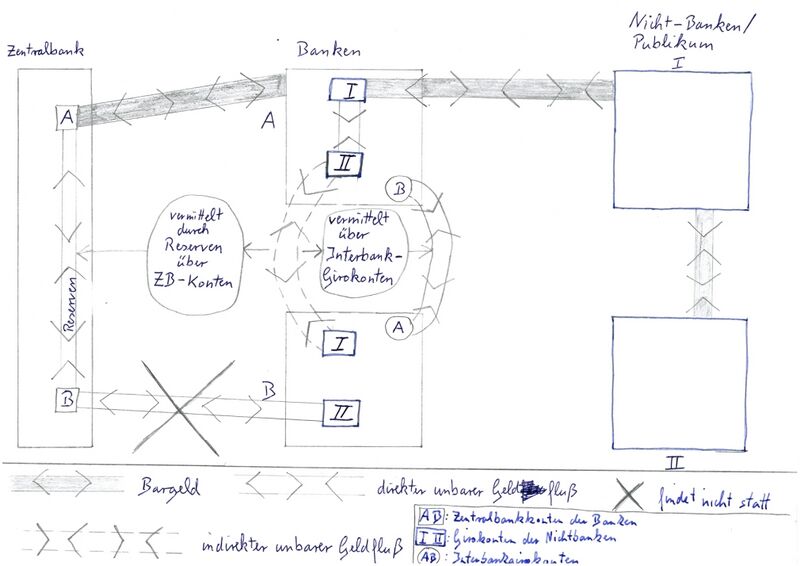 Zentralbank
Banken
Nicht-Banken/
Publikum
I
A
A
I
II
B
vermittelt
durch
Reserven
über
ZB-Konten
vermittelt
über
Interbank-
Girokonten
Reserven
A
I
B
B
II
II
Bargeld
direkter unbarer Geldfluß
findet nicht statt
indirekter unbarer Geldfluß
AB: Zentralbankkonten der Banken
I II: Girokonten der Nichtbanken
AB: Interbankgirokonten